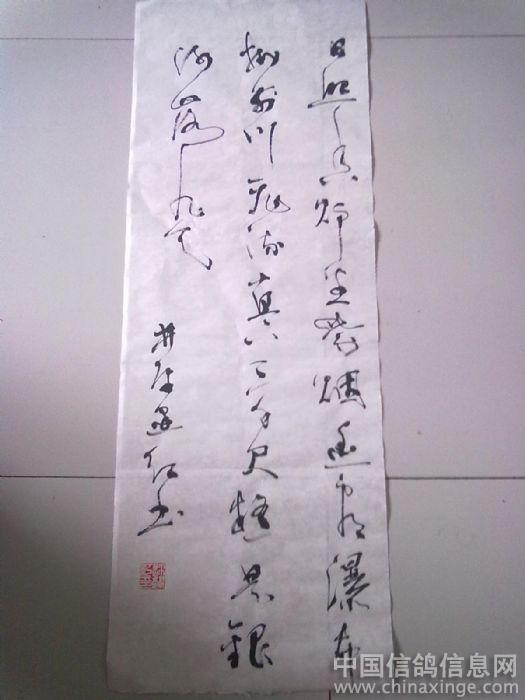 日照香炉生紫烟遥看瀑布
挂前川飛流直下三千尺疑是銀
河落九天
井红书
中国信鸽信息网
www.chinaxinge.com